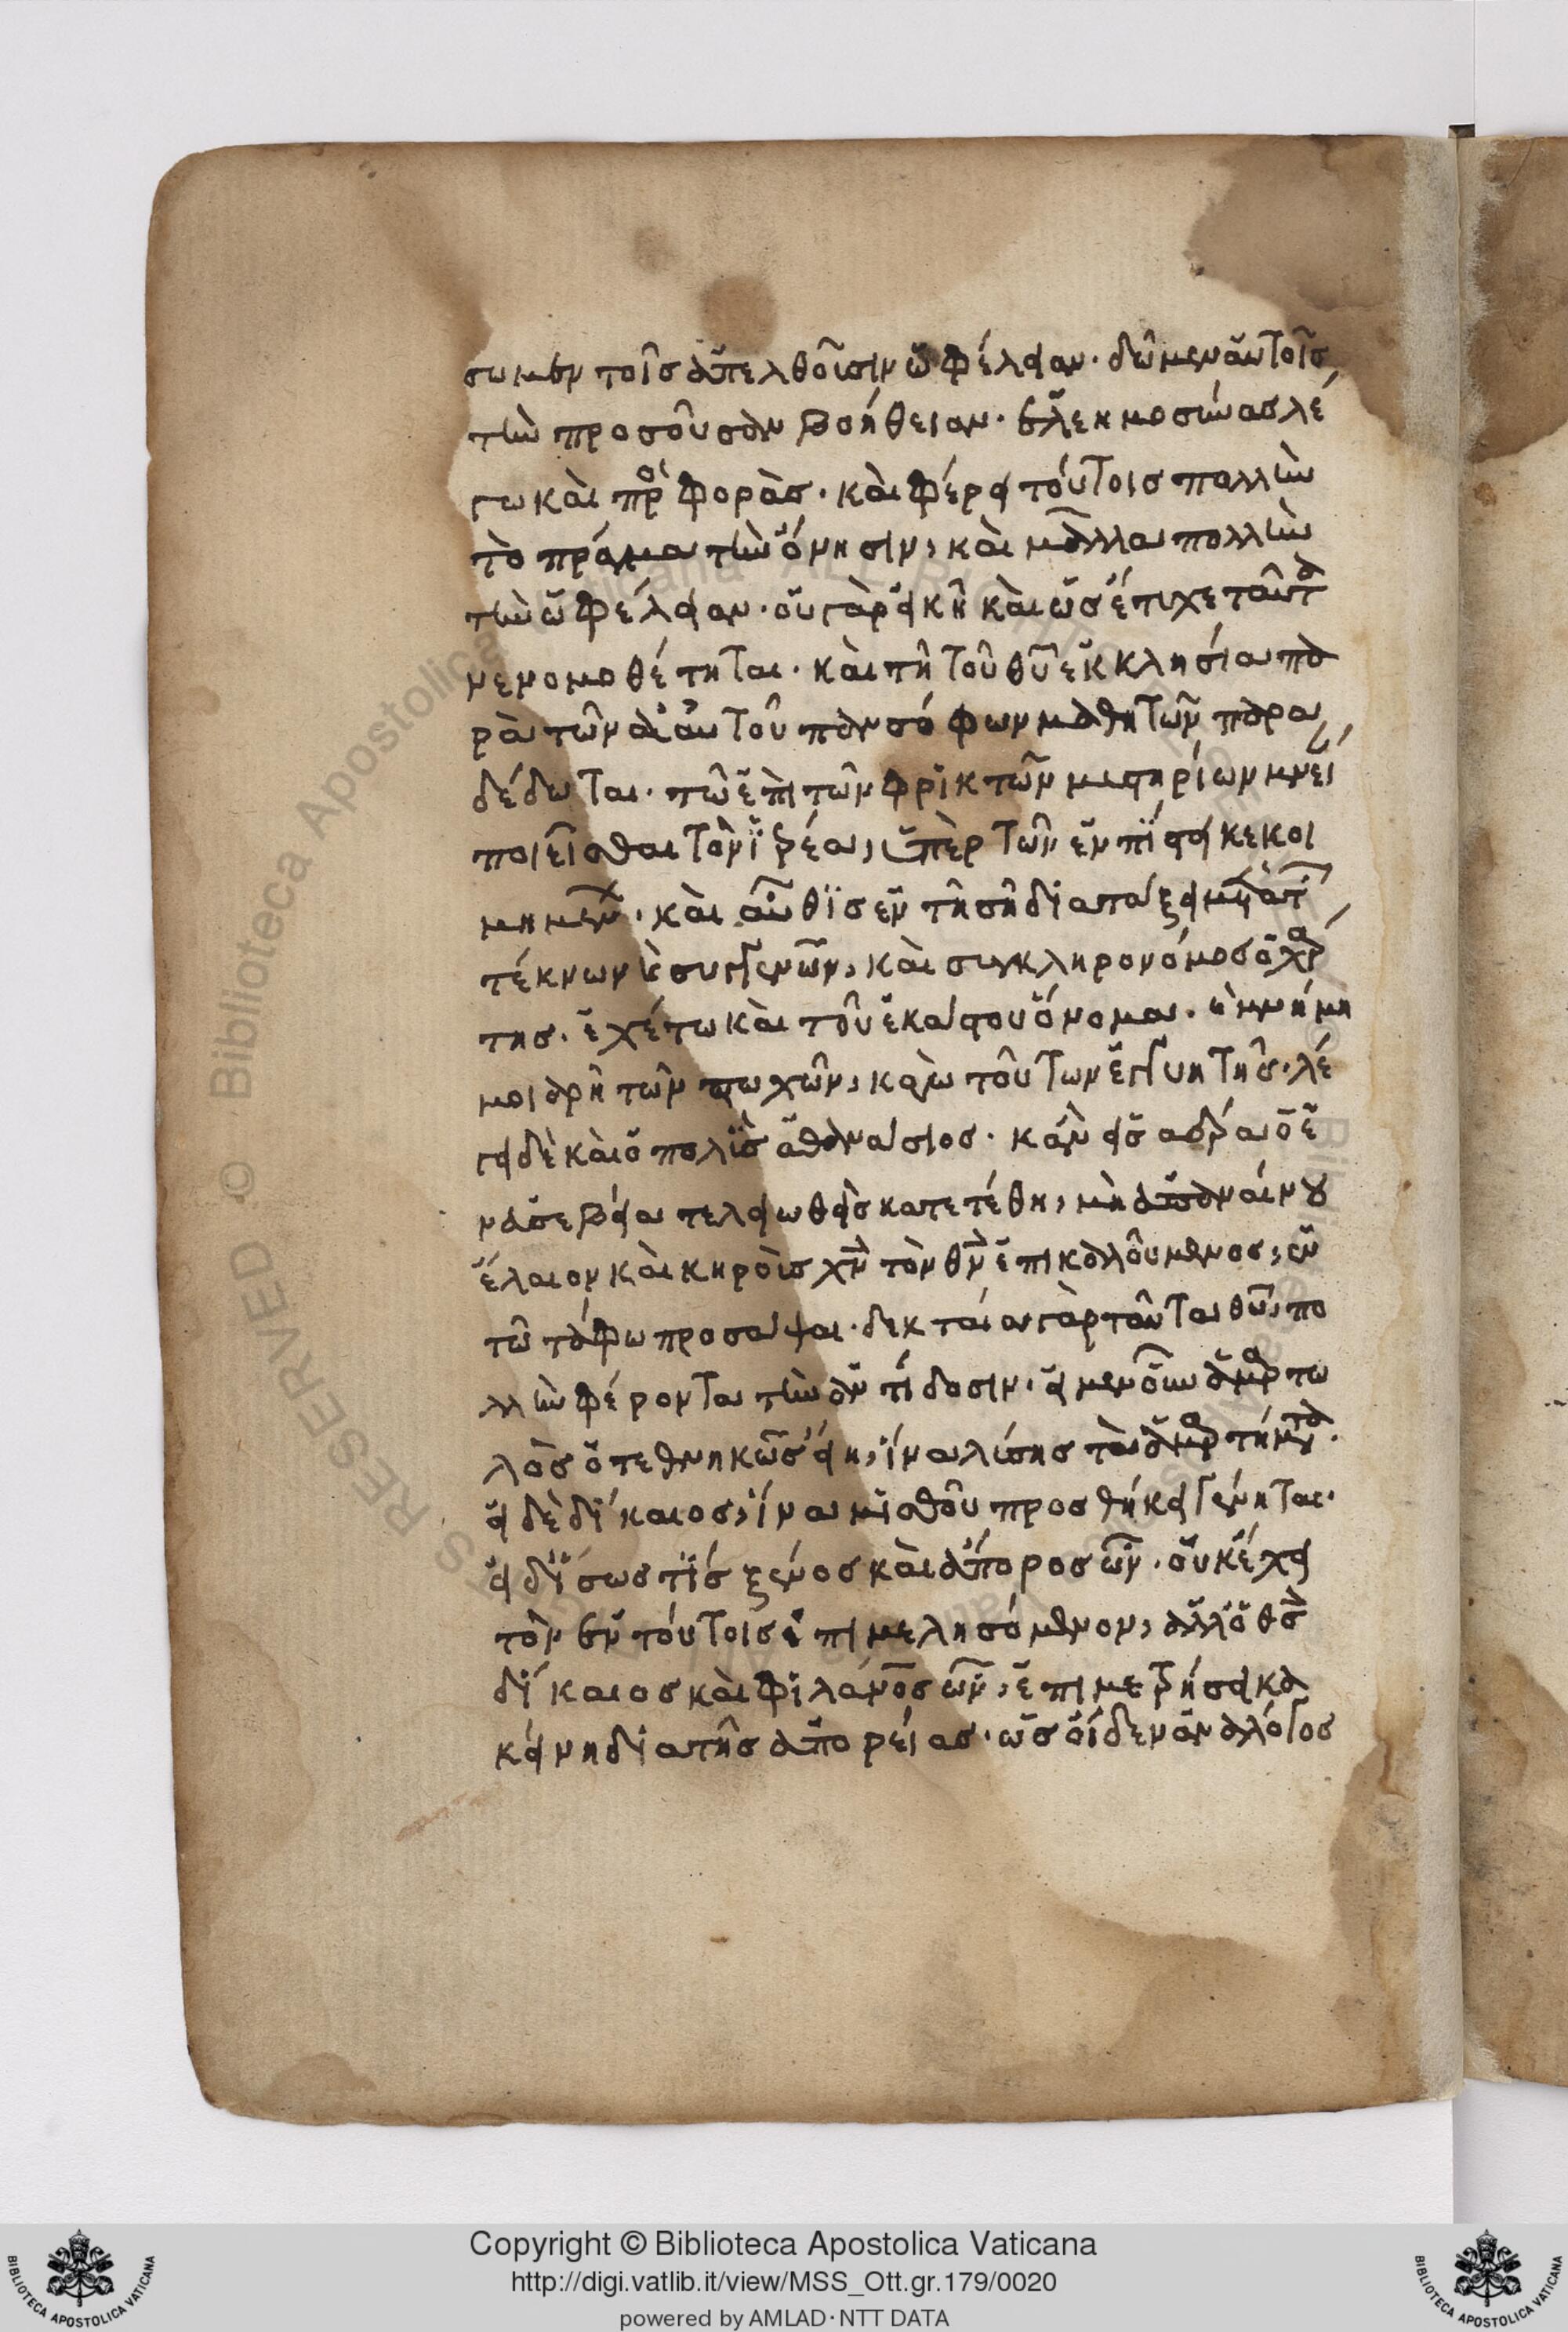 σωμεν τοῖς ἀπελθοῦσιν ὠφέλειαν· δῶμεν αὐτοῖς
τὴν προσοῦσαν βοήθειαν· ἐλεημοσύνας λέ
γω καὶ προσφοράς· καὶ φέρει τούτοις πολλὴν
τὸ πρᾶγμα τὴν ὄνησιν, καὶ μάλα πολλὴν
τὴν ὠφέλειαν· οὐ γὰρ εἰκῆ καὶ ὡς ἔτυχε ταῦτα
νενομοθέτηται· καὶ τῆ τοῦ θῦ ἐκκλησία πα
ρὰ τῶν αὐτοῦ πανσόφων μαθητῶν παρα
δέδωται· τῶ ἐπὶ τῶν φρικτῶν μυστηρίων μνείαν
ποιεῖσθαι τὸν ἱερέα, ὑπὲρ τῶν ἐν πίστει κεκοι
μημένων· καὶ αὖθις ἐν τῆ σῆ διατάξει μετὰ τῶν
τέκνων καὶ συγγενῶν, καὶ συγκληρονόμος ὁ χρι
στης· ἐχέτω καὶ τοῦ ἑκάστου ὄνομα· ἡ μνήμη
τῶν πτωχῶν, καγὼ τούτων ἐγγυητής· λέ
γει δὲ καὶ ὁ πολὺς ἀθανάσιος· κἂν εἰς ἀέρα ὁ ἐ
ν εὐσεβεία τελειωθεὶς κατετέθη, μὴ ἀπαναίνου
ἔλαιον καὶ κηροὺς χν τὸν θν ἐπικαλούμενος, ἐν
τῶ τάφω προσάψαι· δεκτὰ γὰρ ταῦτα θῦ, πο
λλὴν φέροντα τὴν ἀντίδοσιν· εἰ μὲν οὖν ἁμαρτω
λὸς ὁ τεθνηκὼς εἴη, ἵνα λύσης τὰ ἁμαρτήματα·
εἰ δὲ δίκαιος, ἵνα μισθοῦ προσθήκη γένηται·
εἰ δ' ἴσως τίς ξένος καὶ ἄπορος ὤν· οὐκ ἔχει
τὸν ἐν τούτοις ἐπιμελησόμενον, ἀλλ' ὁ θς
δίκαιος καὶ φιλάνος ὤν, ἐπιμετρήσει κα
κείνη διὰ τῆς ἀπορείας· ὡς οἶδεν ἀναλόγως
Copyright © Biblioteca Apostolica Vaticana
http://digi.vatlib.it/view/MSS_Ott.gr.179/0020
powered by AMLAD·NTT DATA
BIBLIOTECA APOSTOLICA VATICANA
BIBLIOTECA APOSTOLICA VATICANA